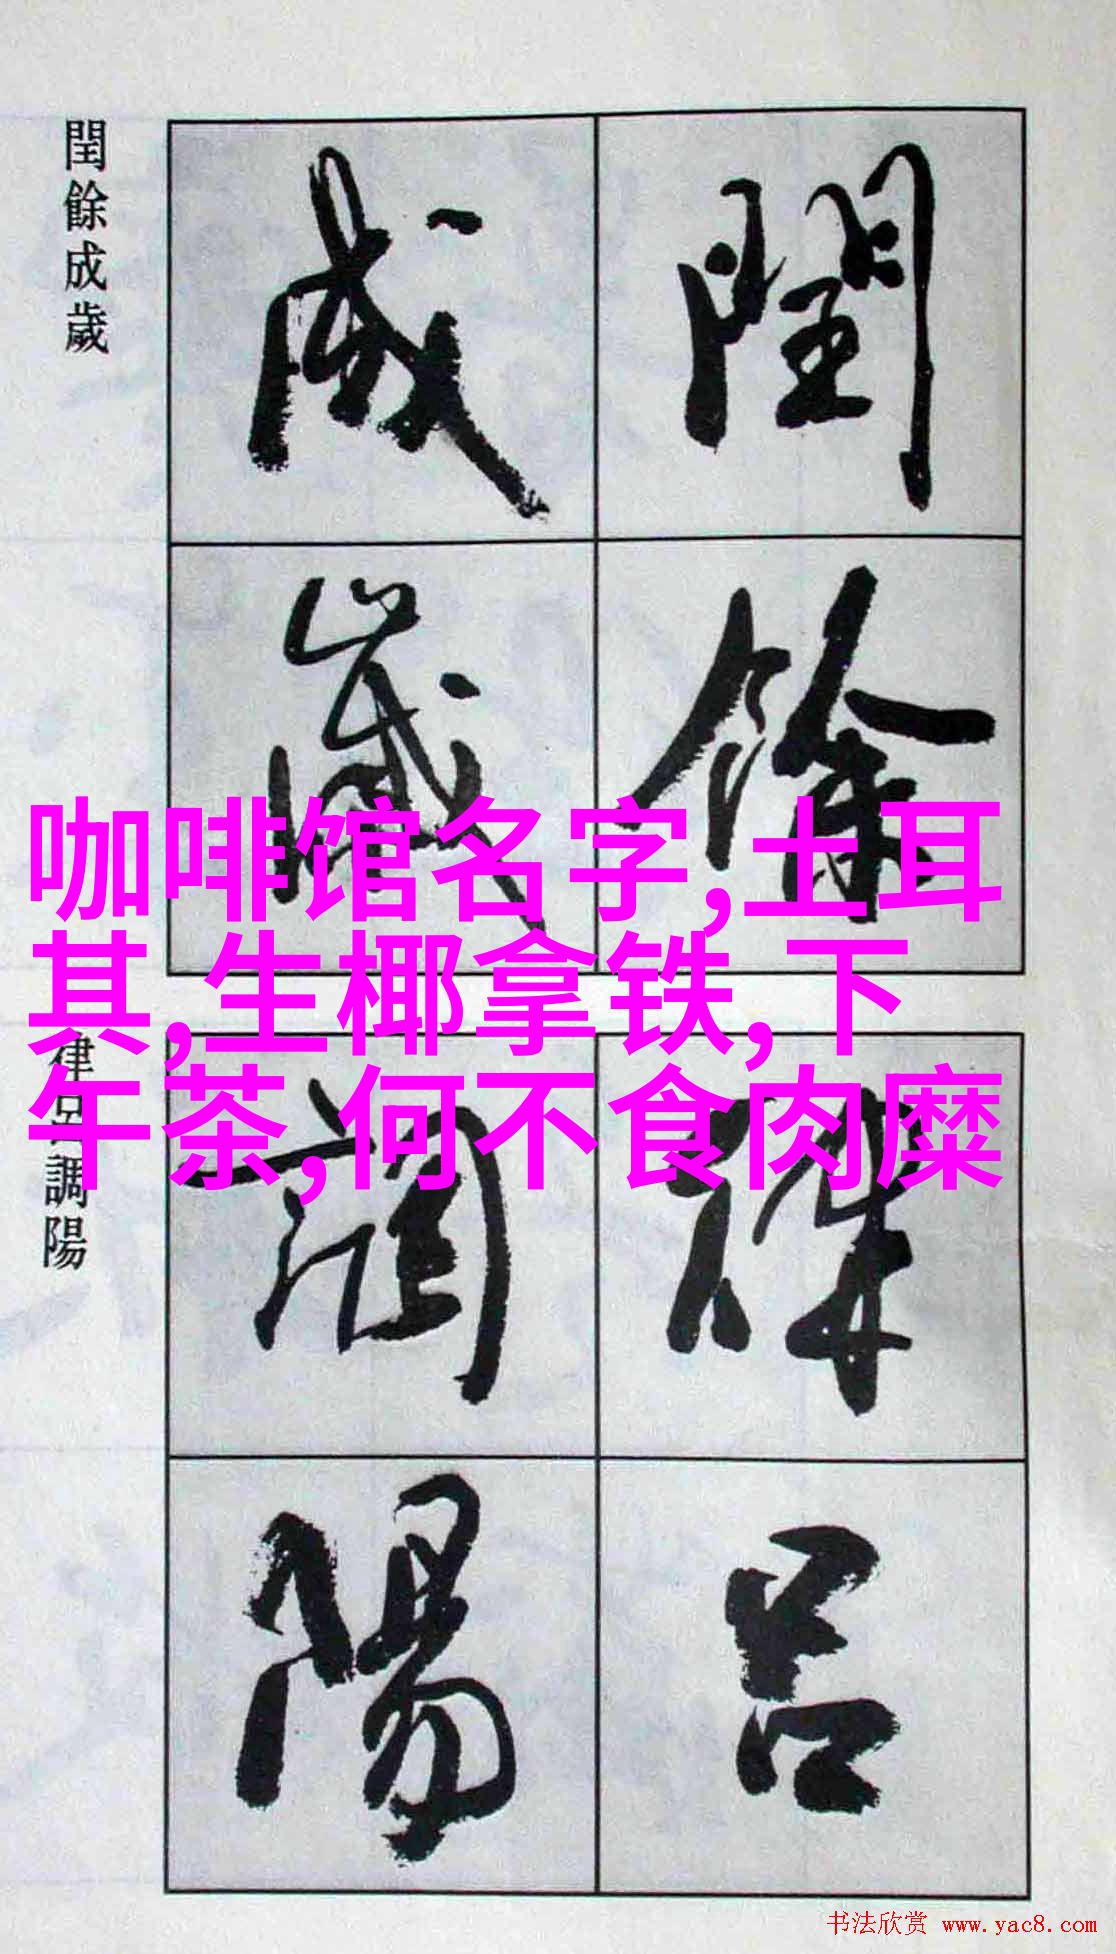 閏餘成歲
閏餘
成歲
咖啡馆名字,土耳
其,生椰拿铁,下
午茶,何不食肉糜
律呂調陽
律呂
調陽
书法欣赏 www.yac8.com